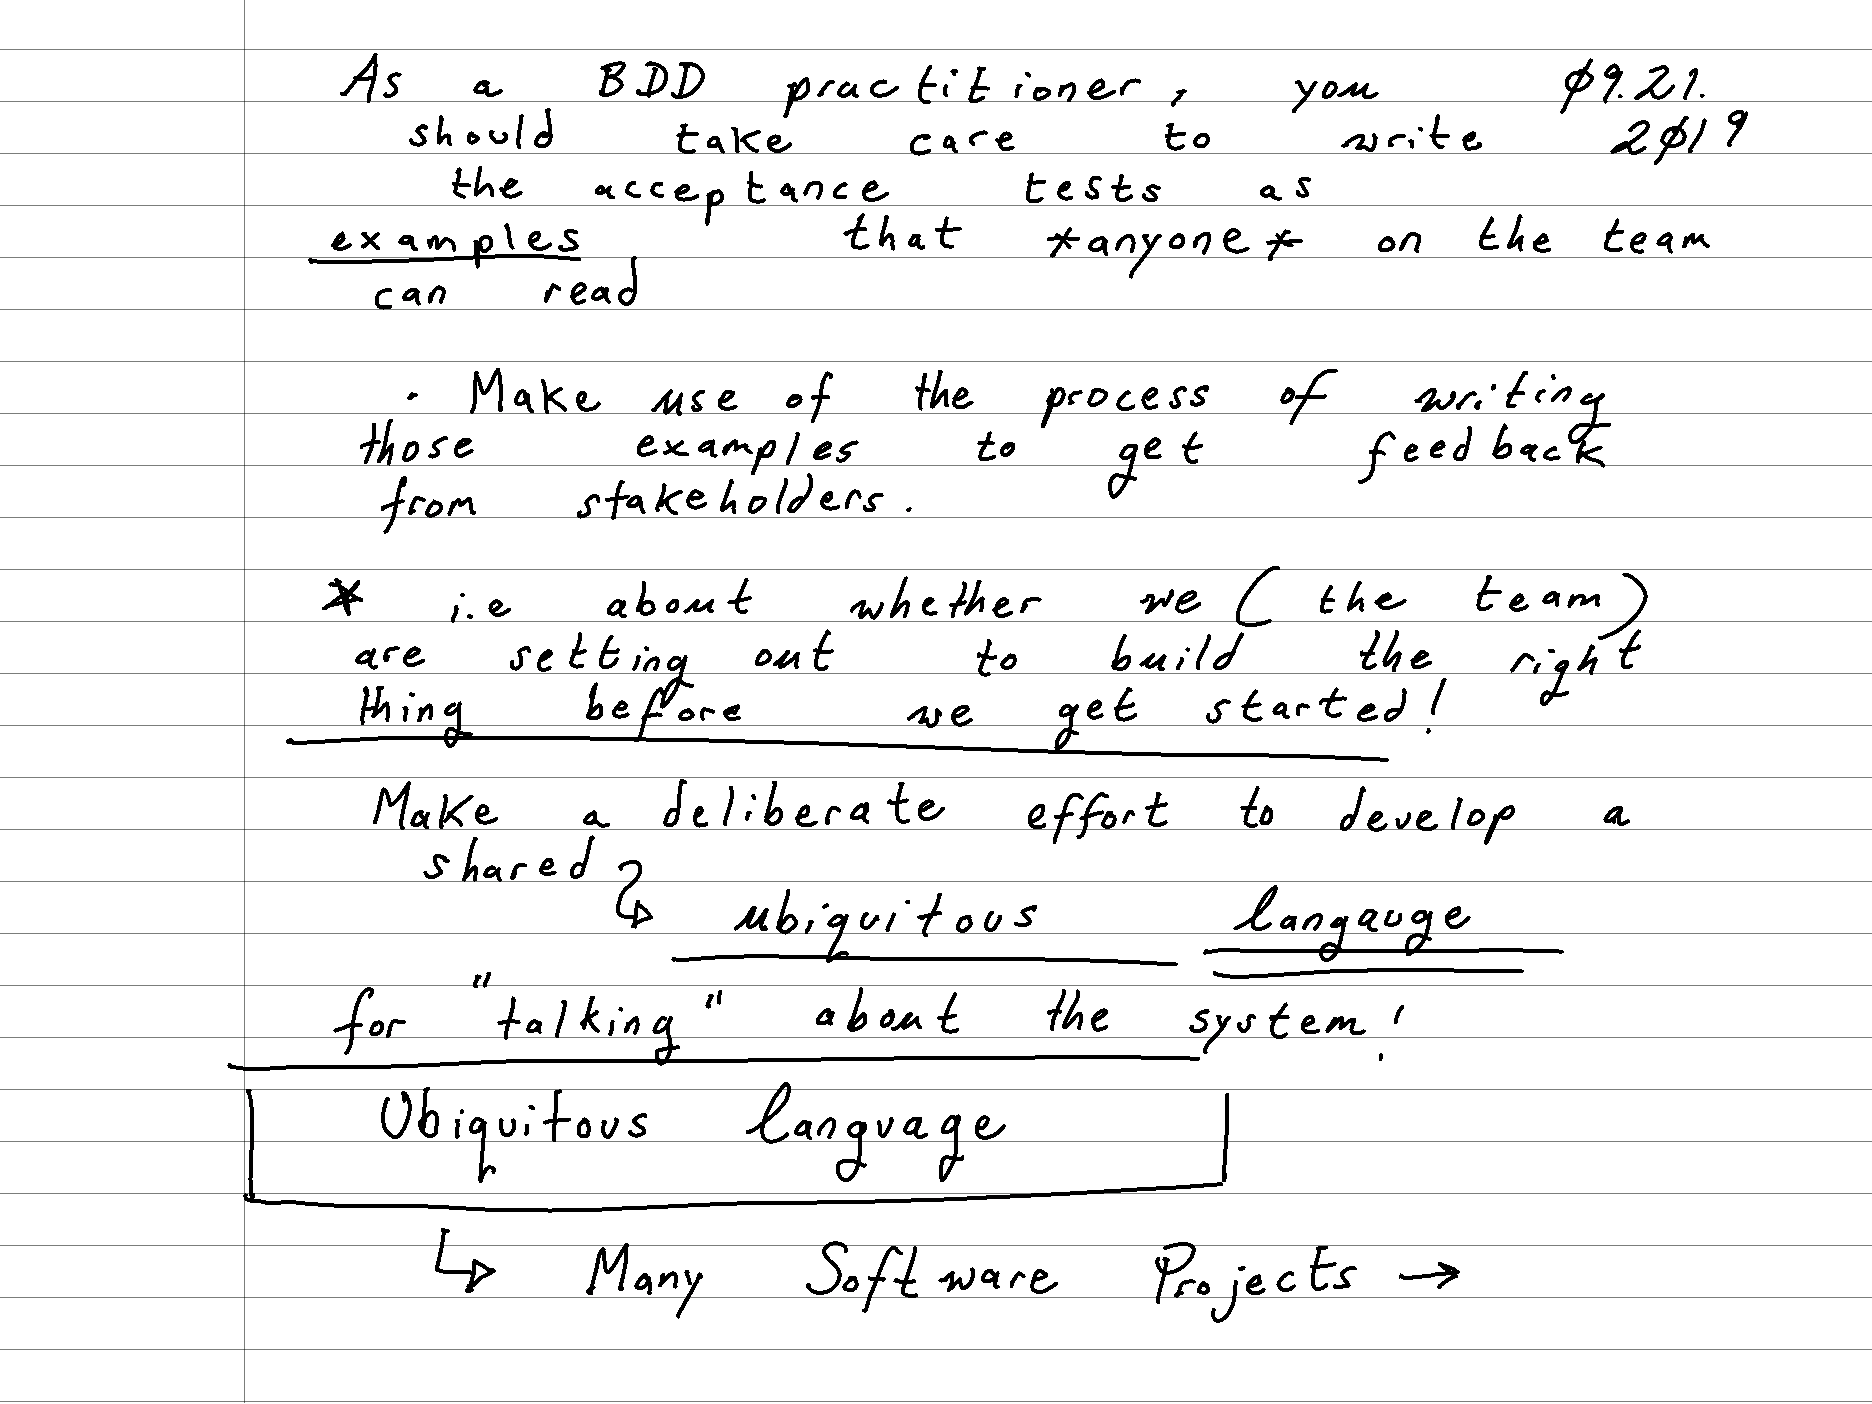 As a BDD practitioner, you Ø9.21.
should take care to write 2Ø19
the acceptance tests as
examples that *anyone* on the team
can read
· Make use of the process of writing
those examples to get feedback
from stakeholders.
* i.e about whether we (the team)
are setting out to build the right
thing before we get started!
Make a deliberate effort to develop a
shared
↳ ubiquitous langauge
for "talking" about the system!
Ubiquitous language
↳ Many Software Projects →